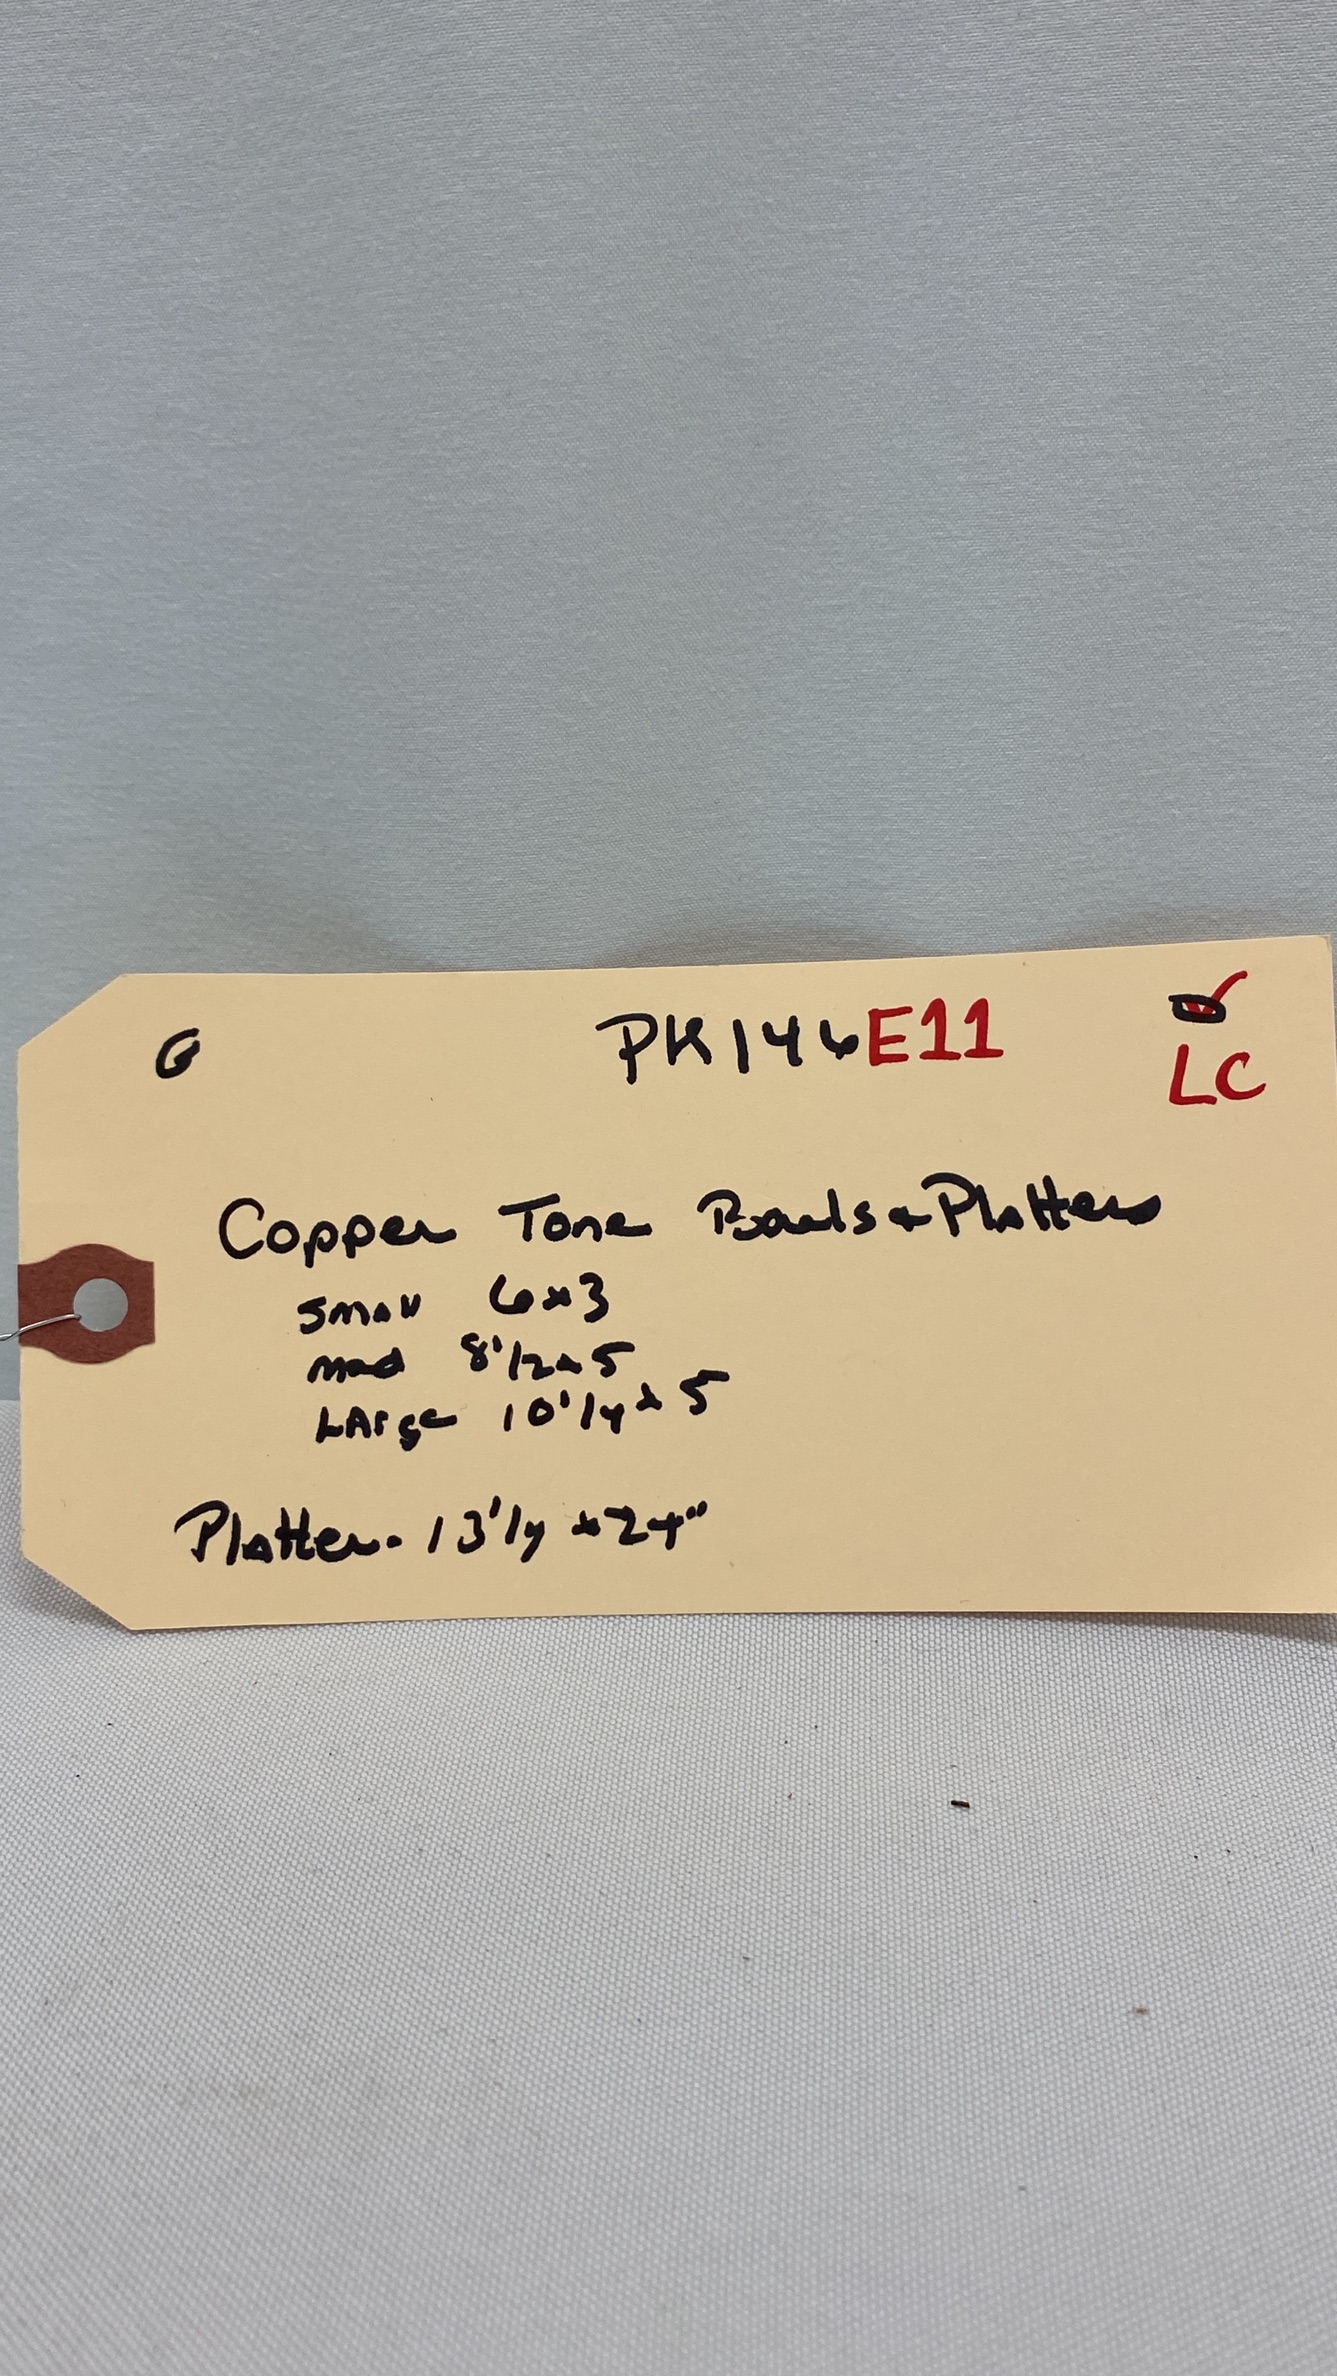 G PK146E11
LC
Copper Tone Bowls & Platters
Small 6x3
Med 8 1/2 x 5
LArge 10 1/4 x 5
Platter - 13 1/4 x 24"